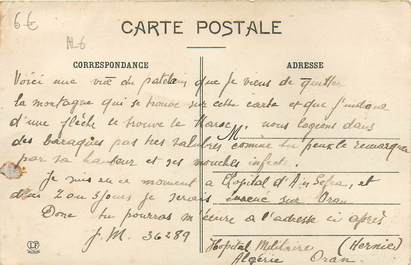 6€
AL6
CARTE POSTALE
CORRESPONDANCE
ADRESSE
Voici une vue du patelin que je viens de quitter
la montagne qui se trouve sur cette carte et que j'indique
d'une flèche se trouve le Maroc, nous logions dans
M
des baraques pas très salubres comme tu peux le remarquer
par sa hauteur et ses mouches infecte.
Je suis en ce moment a l'opital d'Ain Sefra, et
dans 2 ou 3 jours je serais sur Oran
Donc tu pourras m'écrire à l'adresse ci après
J.M. 36289
Hopital Militaire
Algérie Oran
LP